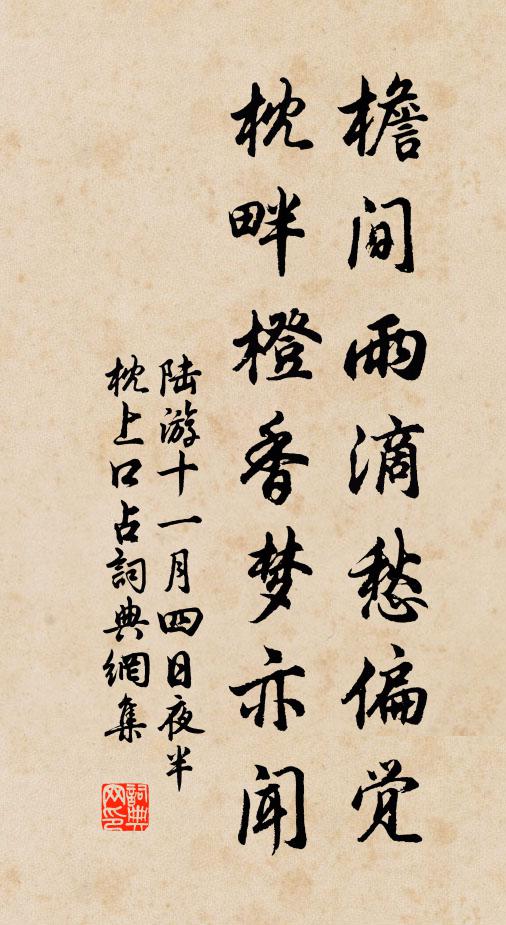 檐间雨滴愁偏觉
枕畔橙香梦亦闻
陆游十一月四日夜半
枕上口占詞典網集
詞典网印